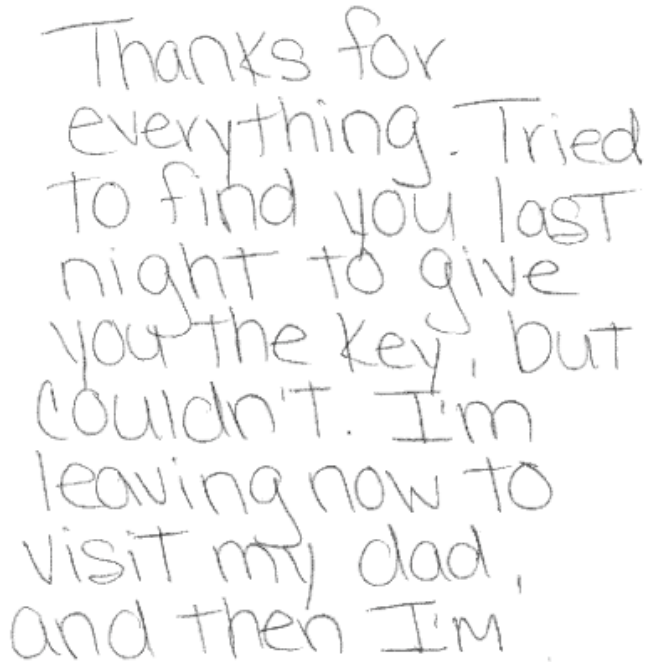 Thanks for
everything. Tried
to find you last
night to give
you the key, but
couldn't. I'm
leaving now to
visit my dad,
and then I'm